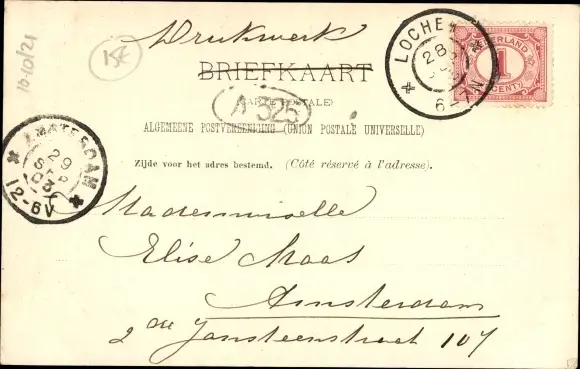 Drukwerk
BRIEFKAART
(CARTE POSTALE)
ALGEMEENE POSTVEREENIGING (UNION POSTALE UNIVERSELLE)
Zijde voor het adres bestemd. (Côté réservé à l'adresse).
Mademoiselle
Elise Maas
Amsterdam
2de Jan Steenstraat 107
A 325
LOCHEM
28
6-7N
NEDERLAND
1
CENT
AMSTERDAM
29
SEP
03
12-6V
10-10/21
15E